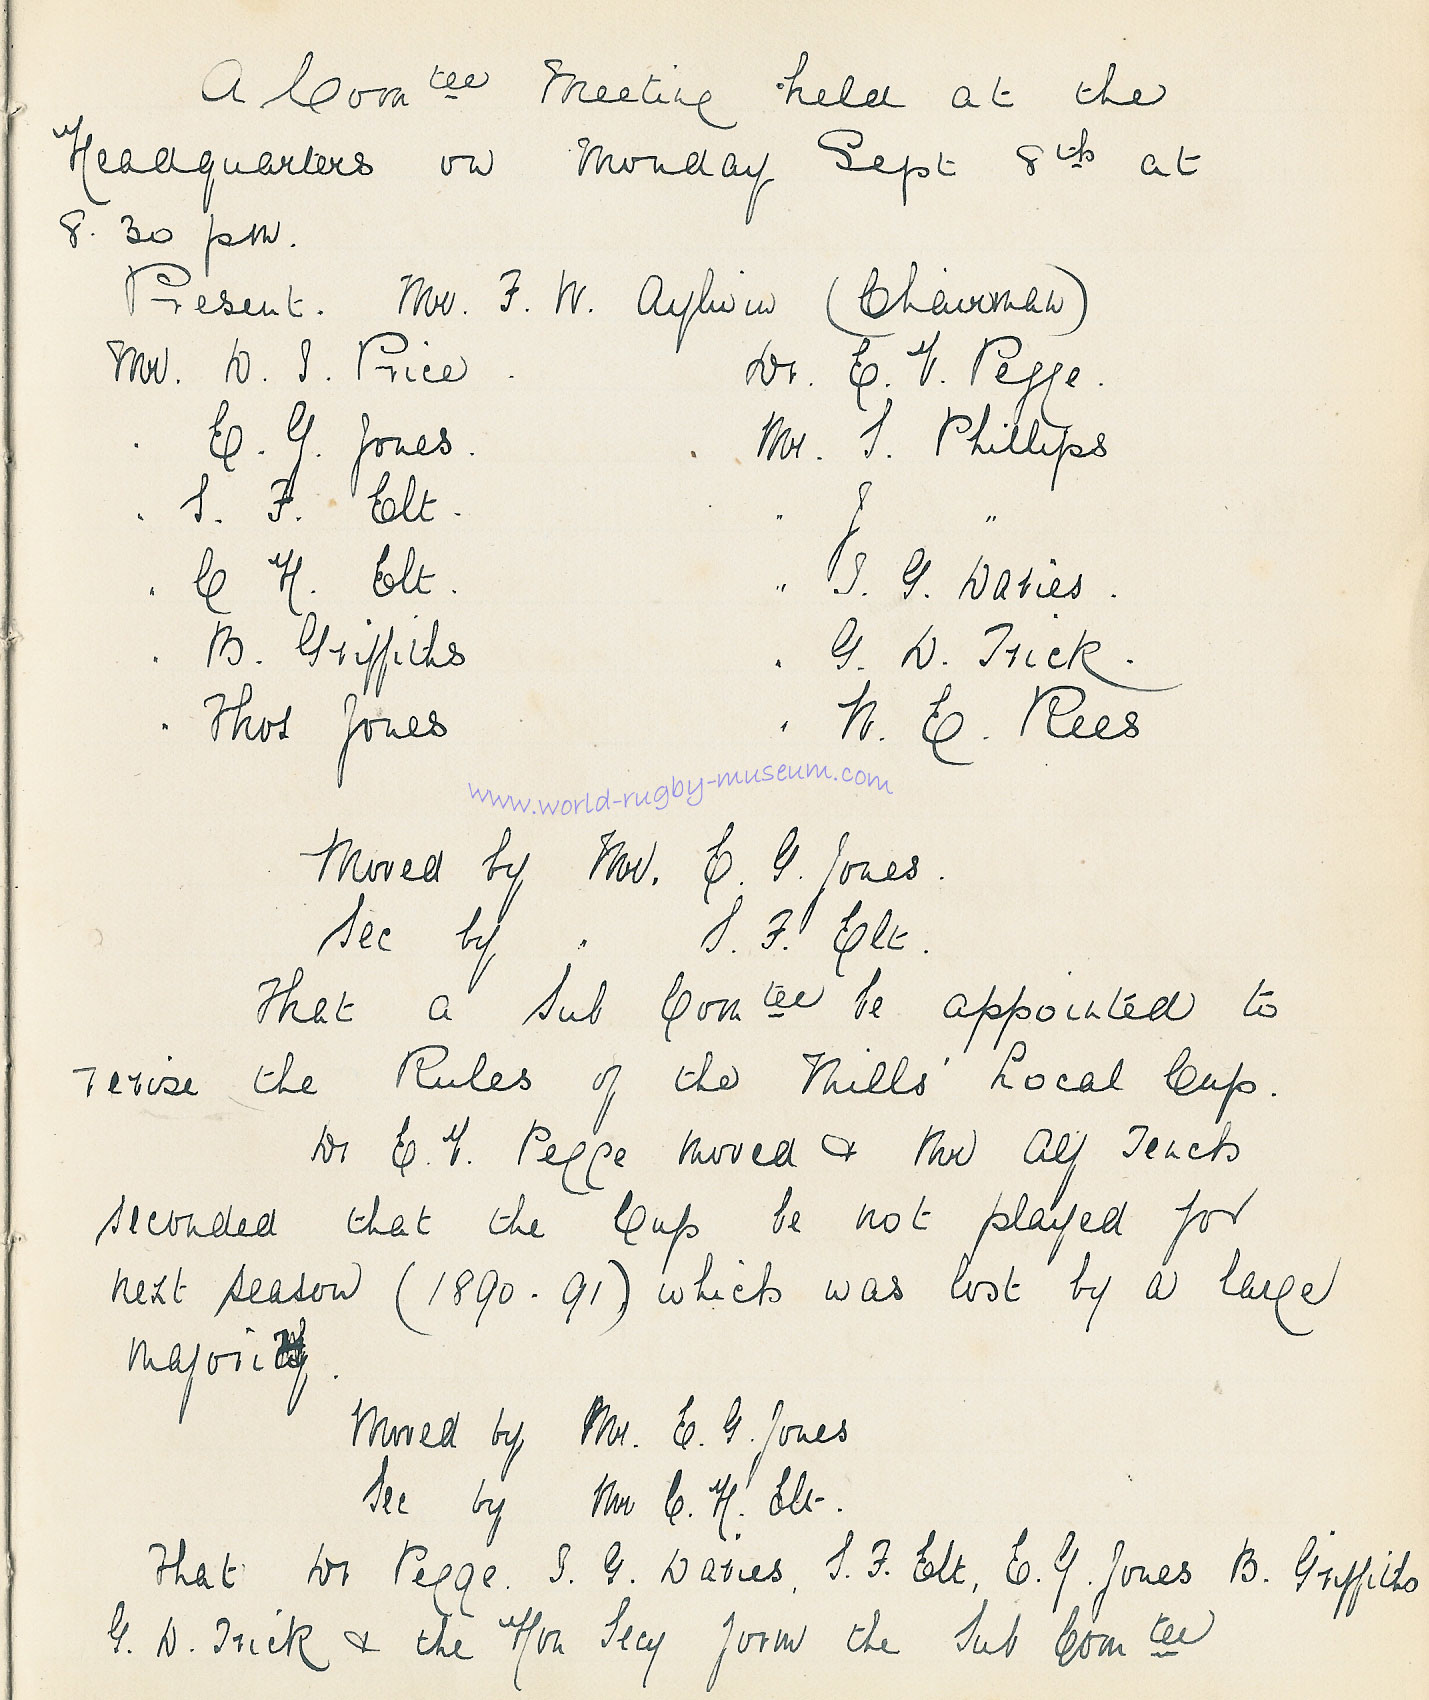 A Com tee Meeting held at the
Headquarters on Monday Sept 8th at
8.30 pm.
Present. Mr. F. W. Aylwin (Chairman)
Mr. D. S. Price. Dr. E. V. Pegge.
" E. G. Jones. Mr. S. Phillips
" S. F. Elt. " J "
" C H. Elt. " S. G. Davies.
" B. Griffiths " G. D. Trick.
" Thos Jones " W. E. Rees
www.world-rugby-museum.com
Moved by Mr. E. G. Jones.
Sec by " S. F. Elt.
That a Sub Com tee be appointed to
revise the Rules of the Mills' Local Cup.
Dr E. V. Pegge moved & Mr Alf Tench
seconded that the Cup be not played for
next season (1890-91) which was lost by a large
majority.
Moved by Mr. E. G. Jones
Sec by Mr C. H. Elt.
That Dr Pegge. S. G. Davies, S. F. Elt, E. G. Jones B. Griffiths
G. D. Trick & the Hon Secy form the Sub Com tee